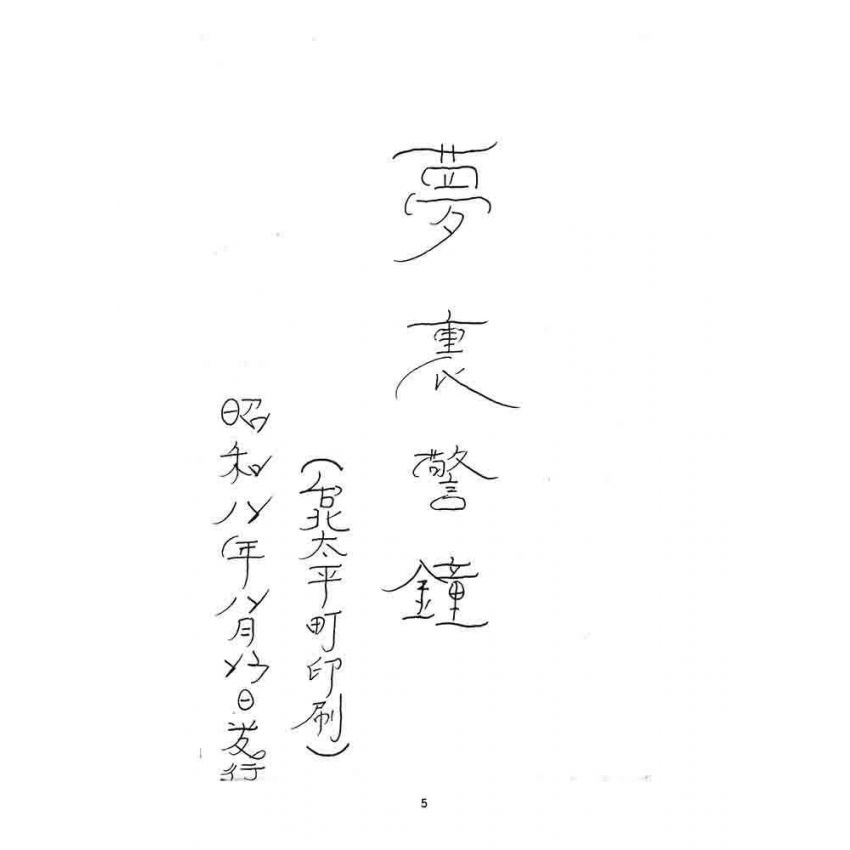 夢裏警鐘
(台北太平町印刷)
昭和八年八月日发行
5